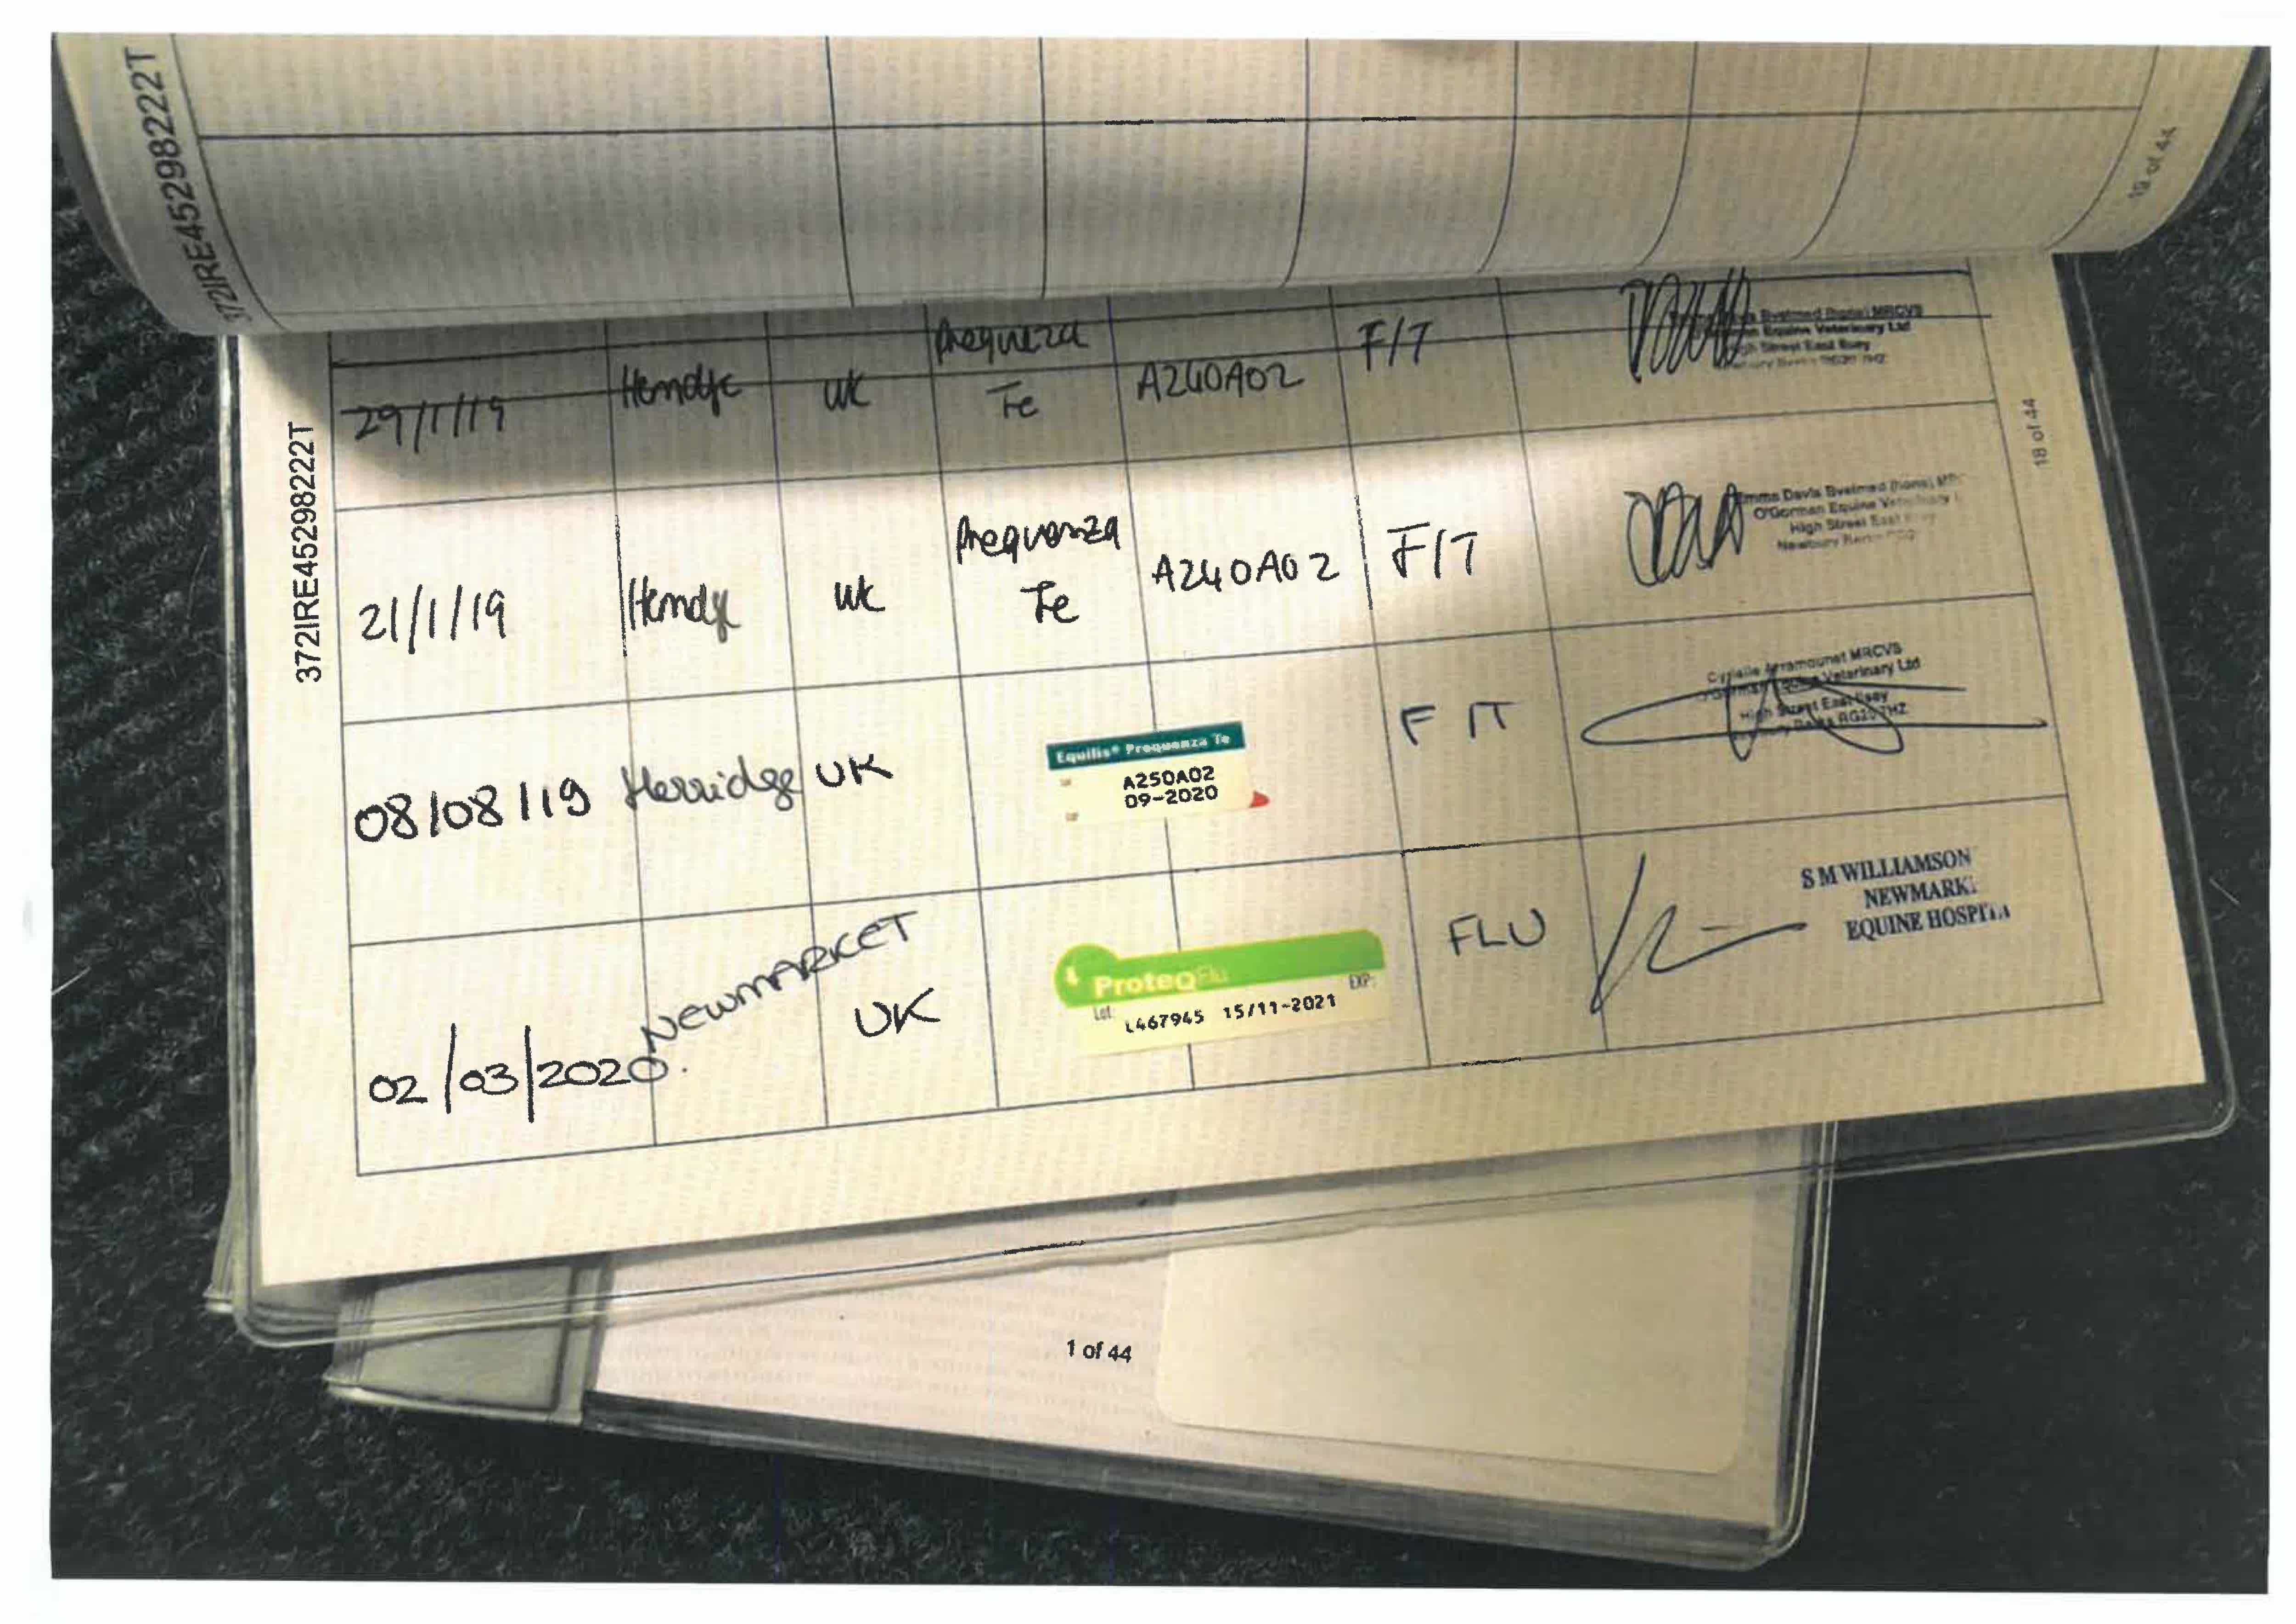 372IRE45298222T
19 of 44
372IRE45298222T
18 of 44
29/1/19 UK Prequenza Te A240A02 F/T
Bvetmed (hons) MRCVS
Equine Veterinary Ltd
High Street East Ilsey
21/1/19 UK Prequenza Te A240A02 F/T
Emma Davis Bvetmed (hons)
O'Gorman Equine Veterinary
High Street East
Newbury
08/08/19 Herridge UK
Equilis® Prequenza Te
A250A02
09-2020
F IT
Cyrielle MRCVS
Veterinary Ltd
High Street East Ilsey
RG20 7HZ
02/03/2020. NEWMARKET UK
ProteqFlu
Lot: EXP:
L467945 15/11-2021
FLU
S M WILLIAMSON
NEWMARK
EQUINE HOSPITA
1 of 44